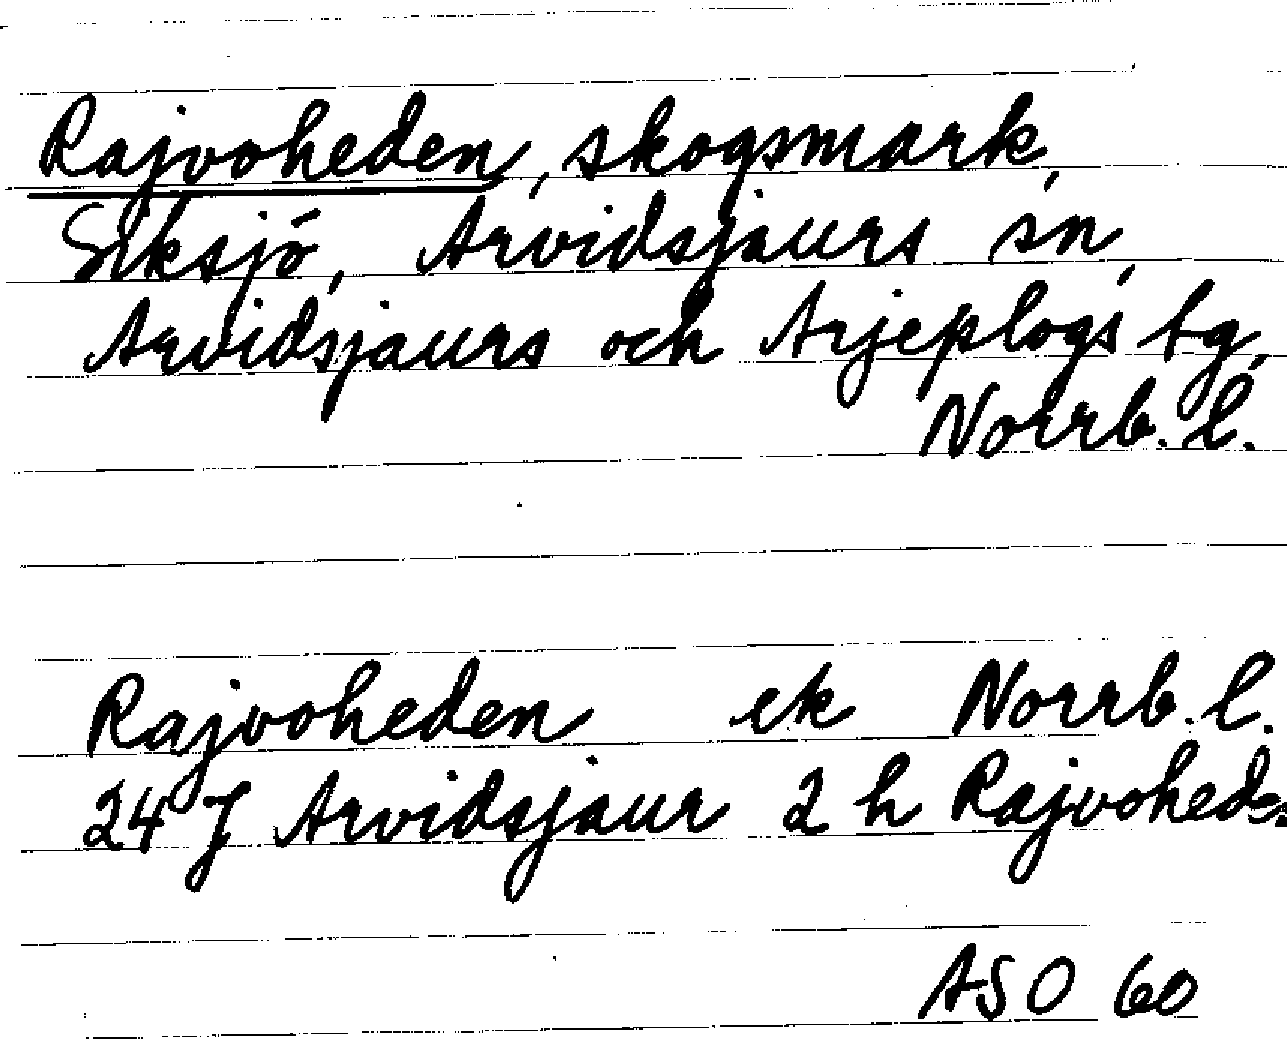 Rajvoheden, skogsmark,
Siksjö, Arvidsjaurs sn,
Arvidsjaurs och Arjeplogs tg,
Norrb. l.
Rajvoheden ek Norrb. l.
24 J Arvidsjaur 2 h Rajvoheds.
ASO 60